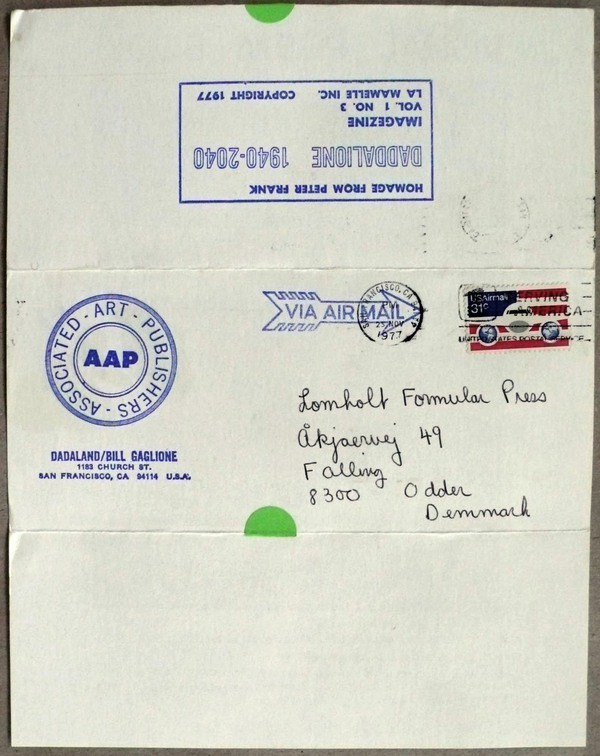 HOMAGE FROM PETER FRANK
DADDALIONE 1940-2040
IMAGEZINE
VOL. 1 NO. 3
LA MAMELLE INC. COPYRIGHT 1977
ASSOCIATED - ART - PUBLISHERS -
AAP
DADALAND/BILL GAGLIONE
1183 CHURCH ST.
SAN FRANCISCO, CA 94114 U.S.A.
VIA AIR MAIL
SAN FRANCISCO, CA
PM
25 NOV
1977
USAirmail
31c
SERVING
AMERICA
UNITED STATES POSTAL SERVICE
Lomholt Formular Press
Åkjaervej 49
Falling
8300 Odder
Demmark